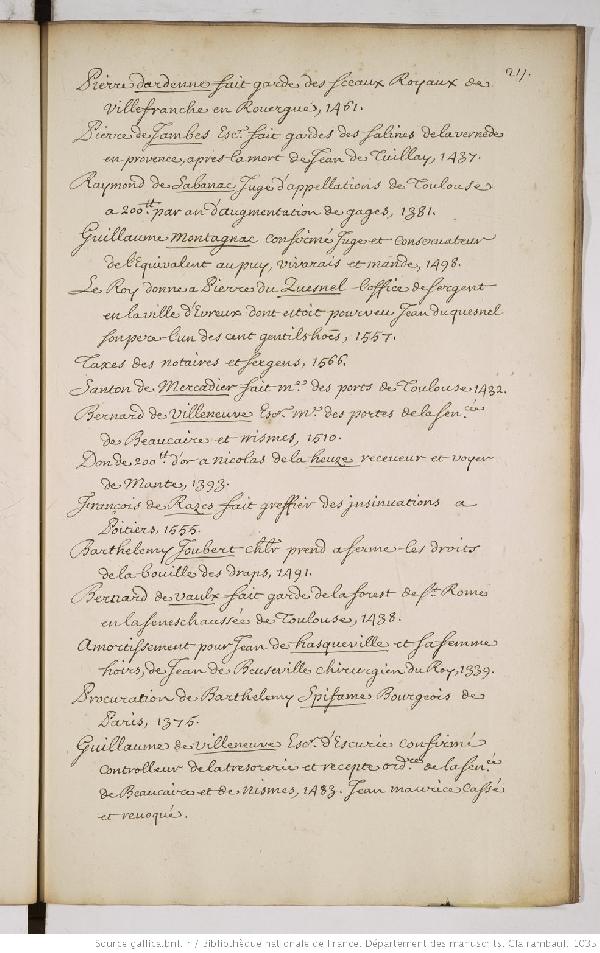 217.
Pierre dardenne fait garde des sceaux Royaux de
Villefranche en Rouergue, 1461.
Pierre de Jambes Escr. fait gardes des salines de la vernede
en provence, apres la mort de Jean de Tuillay, 1437.
Raymond de Sabanac Juge d'appellations de Toulouse
a 200tt. par an d'augmentation de gages, 1381.
Guillaume Montagnac confirmé Juge et conservateur
de l'Equivalent au puy, vivarais et mande, 1498.
Le Roy donne a Pierre du Quesnel l'office de sergent
en la ville d'Evreux dont estoit pourveu Jean du quesnel
son pere l'un des cent gentilshoēs, 1557.
Taxes des notaires et sergens, 1566.
Santon de Mercadier fait me. des ports de Toulouse 1432.
Bernard de Villeneuve Escr. me. des portes de la senée.
de Beaucaire et nismes, 1510.
Don de 200tt d'or a nicolas de la heuze receveur et voyer
de Mante, 1393.
François de Razes fait greffier des insinuations a
Poitiers, 1555.
Barthelemy Joubert chlr prend a ferme les droits
de la bouille des draps, 1491.
Bernard de vaulx fait garde de la forest de St. Rome
en la seneschaussée de Toulouse, 1438.
Amortissement pour Jean de hasqueville et sa femme
hoirs, de Jean de Beuseville chirurgien du Roy, 1339.
Procuration de Barthelemy Spifame Bourgeois de
Paris, 1375.
Guillaume de villeneuve Escr. d'Escurie confirmé
controlleur de la tresorerie et recepte ordres de la senée.
de Beaucaire et de Nismes, 1483. Jean maurice Cassé
et revoqué.
Source gallica.bnf.fr / Bibliothèque nationale de France. Département des manuscrits. Clairambault. 1035